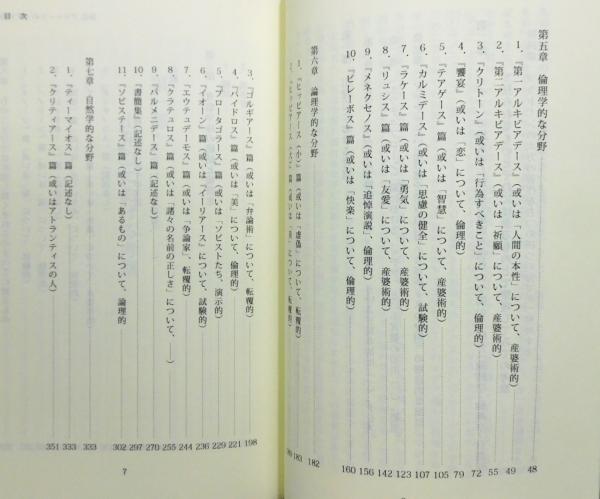 第五章　倫理学的な分野 48
1、『第一アルキビアデース』（或いは「人間の本性」について、産婆術的） 49
2、『第二アルキビアデース』（或いは「祈願」について、産婆術的） 55
3、『クリトーン』（或いは「行為すべきこと」について、倫理的） 72
4、『饗宴』（或いは「恋」について、倫理的） 79
5、『テアゲース』篇（或いは「智慧」について、産婆術的） 105
6、『カルミデース』（或いは「思慮の健全」について、試験的） 107
7、『ラケース』篇（或いは「勇気」について、産婆術的） 123
8、『リュシス』篇（或いは「友愛」について、産婆術的） 142
9、『メネクセノス』（或いは「追悼演説」、倫理的） 156
10、『ピレーボス』篇（或いは「快楽」について、倫理的） 160
第六章　論理学的な分野 182
1、『ヒッピアース（小）』篇（或いは「虚偽」について、転覆的） 183
目　次
3、『ゴルギアース』篇（或いは「弁論術」について、転覆的） 198
4、『パイドロス』篇（或いは「美」について、倫理的） 221
5、『プロータゴラース』篇（或いは「ソピストたち」、演示的） 229
6、『イオーン』篇（或いは『イーリアース』について、試験的） 236
7、『エウテュデーモス』篇（或いは「争論家」、転覆的） 244
8、『クラテュロス』篇（或いは「諸々の名前の正しさ」について、――） 255
9、『パルメニデース』篇（記述なし） 270
10、『書簡集』（記述なし） 297
11、『ソピステース』篇（或いは「あるもの」について、論理的） 302
第七章　自然学的な分野 333
1、『ティーマイオス』篇（記述なし） 333
2、『クリティアース』篇（或いはアトランティスの人） 351
7